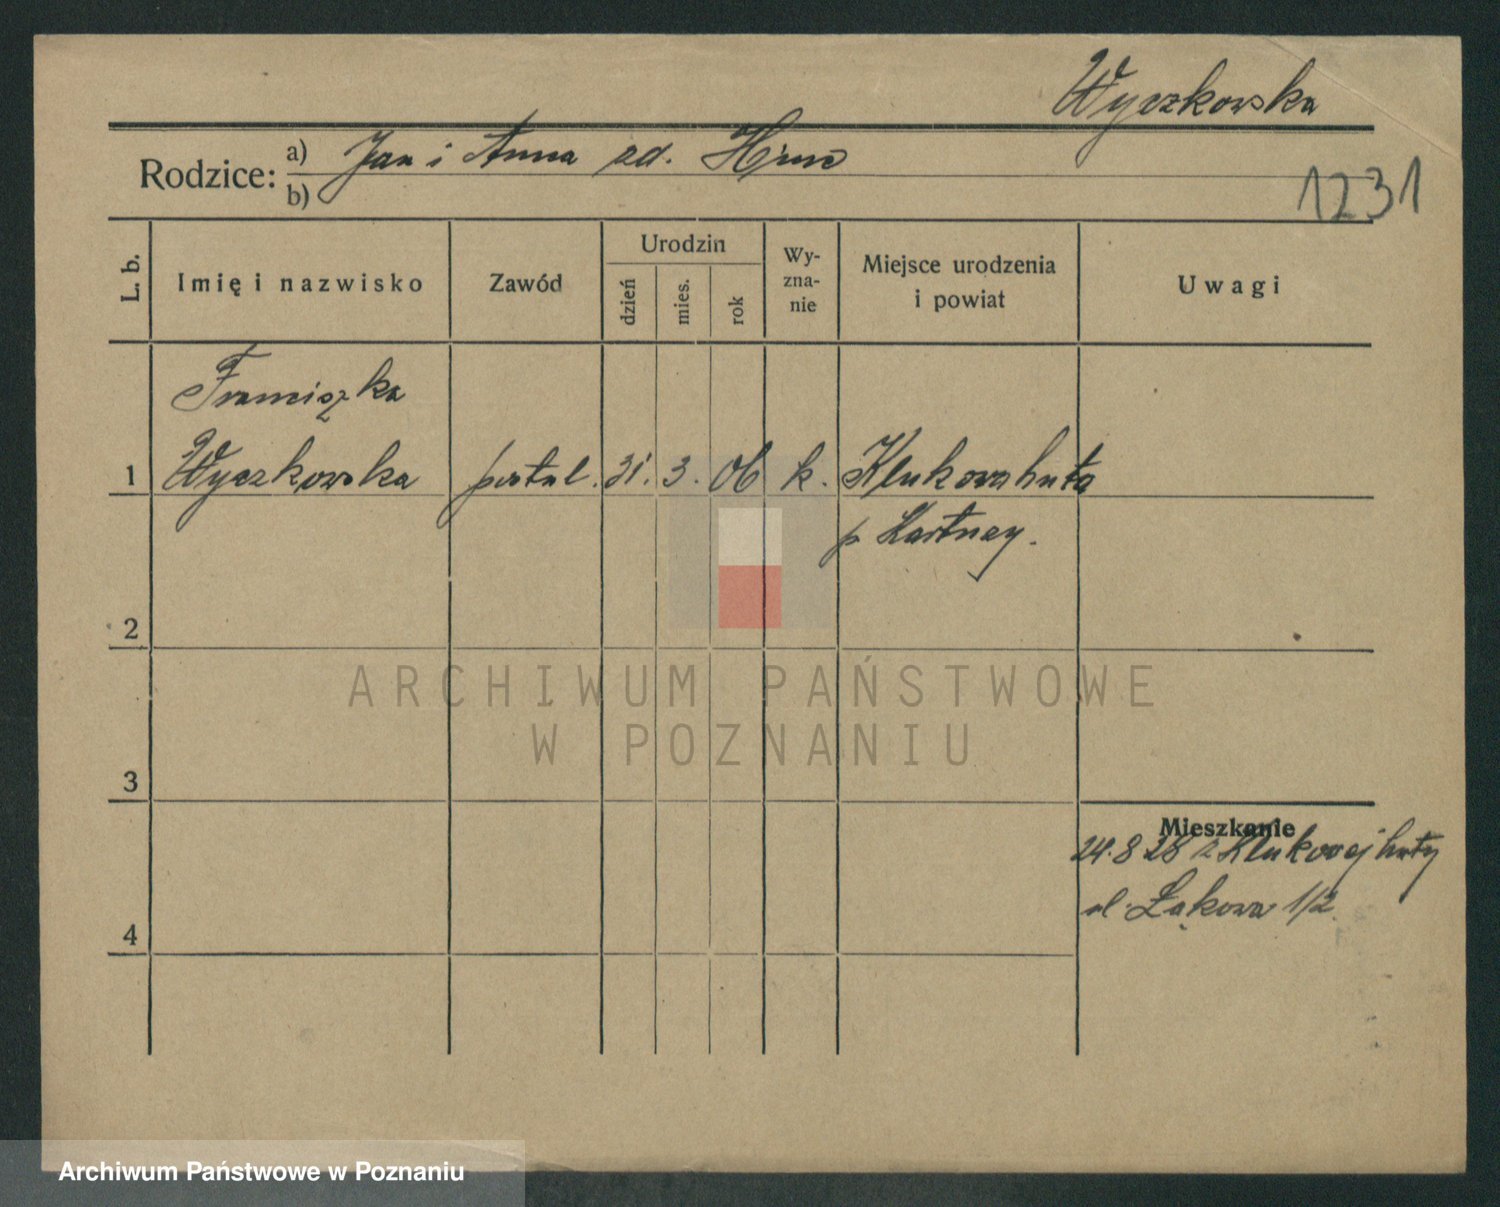 Wyczkowska
Rodzice: a) Jan i Anna zd.
b)
1231
L. b.
Imię i nazwisko
Zawód
Urodzin
dzień
mies.
rok
Wy-
zna-
nie
Miejsce urodzenia
i powiat
Uwagi
Franciszka
1 Wyczkowska 31. 3. 06 k. Klukowahuta
p Kartuzy.
2
ARCHIWUM PAŃSTWOWE
W POZNANIU
3
Mieszkanie
24.8 28 z Klukowej huty
ul. Łąkowa 1/2
4
Archiwum Państwowe w Poznaniu